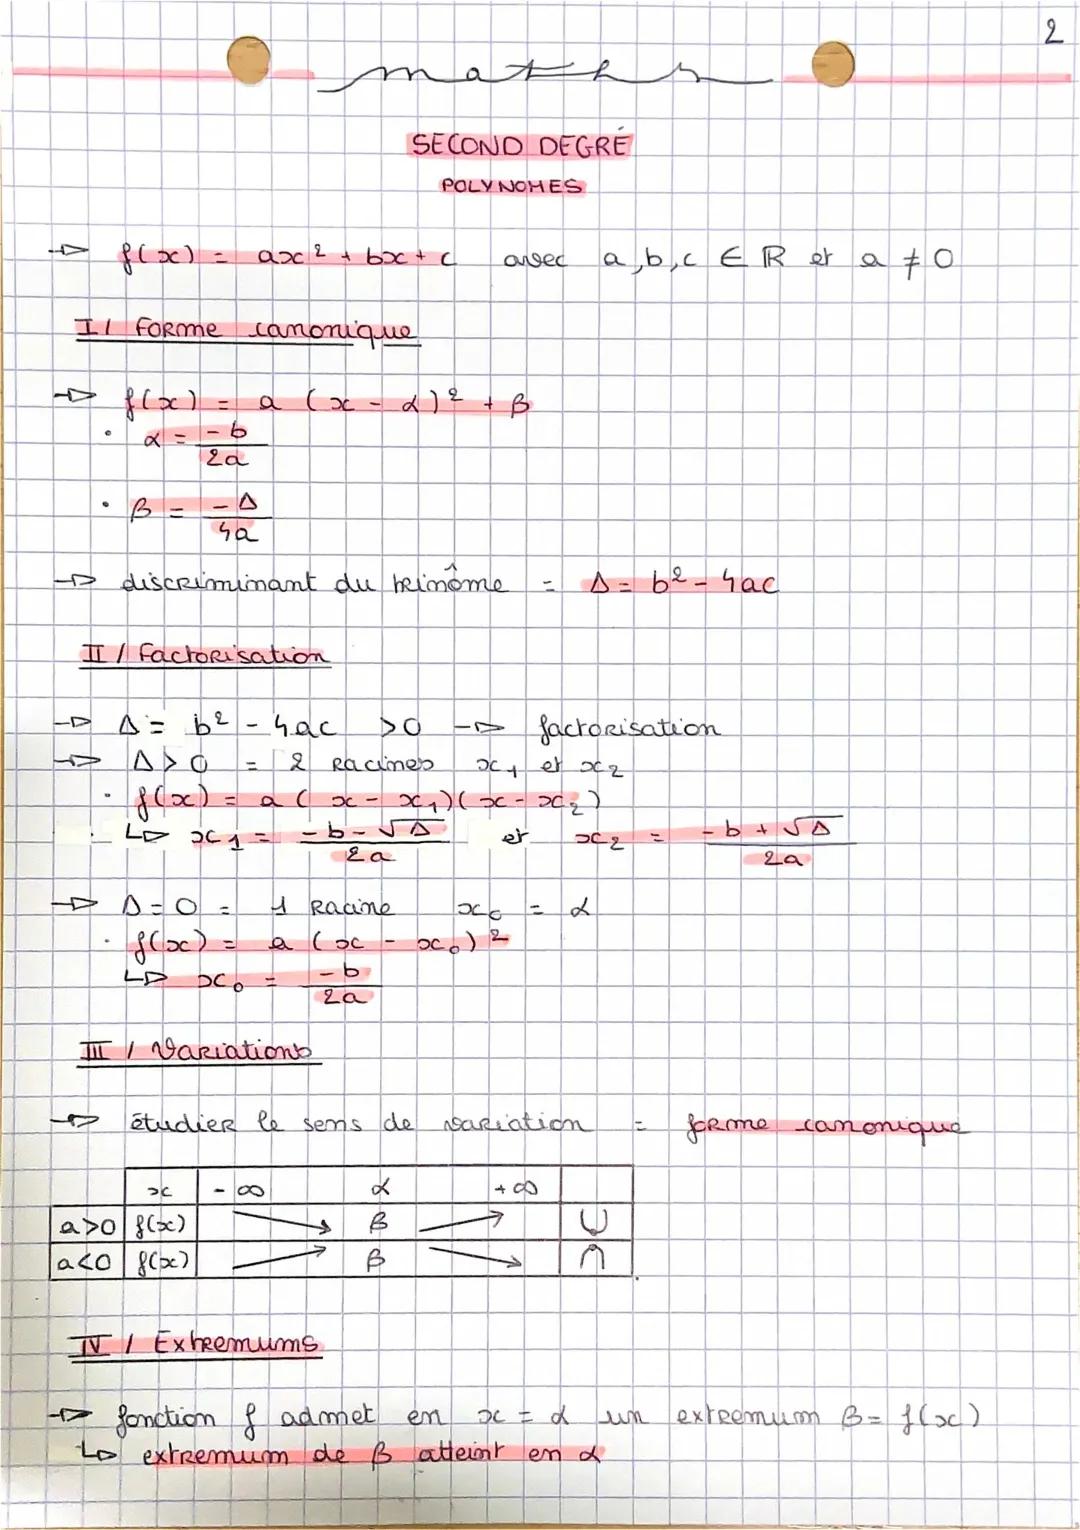 2
maths
SECOND DEGRÉ
POLYNOMES
→ f(x) = ax² + bx + c avec a,b,c ∈ ℝ et a ≠ 0
I / Forme canonique
→ f(x) = a (x - α)² + β
• α = -b/2a
• β = -Δ/4a
→ discriminant du trinôme = Δ = b² - 4ac
II / Factorisation
→ Δ = b² - 4ac >0 → factorisation
→ Δ > 0 = 2 Racines x₁ et x₂
• f(x) = a ( x - x₁)( x - x₂)
↳ x₁ = -b-√Δ/2a et x₂ = -b+√Δ/2a
→ Δ = 0 = 1 Racine x₀ = α
• f(x) = a (x - x₀)²
↳ x₀ = -b/2a
III / Variations
→ étudier le sens de variation = forme canonique
x -∞ α +∞
a>0 f(x) ↘ β ↗ ∪
a<0 f(x) ↗ β ↘ ∩
IV / Extremums
→ fonction f admet en x = α un extremum β = f(x)
↳ extremum de β atteint en α